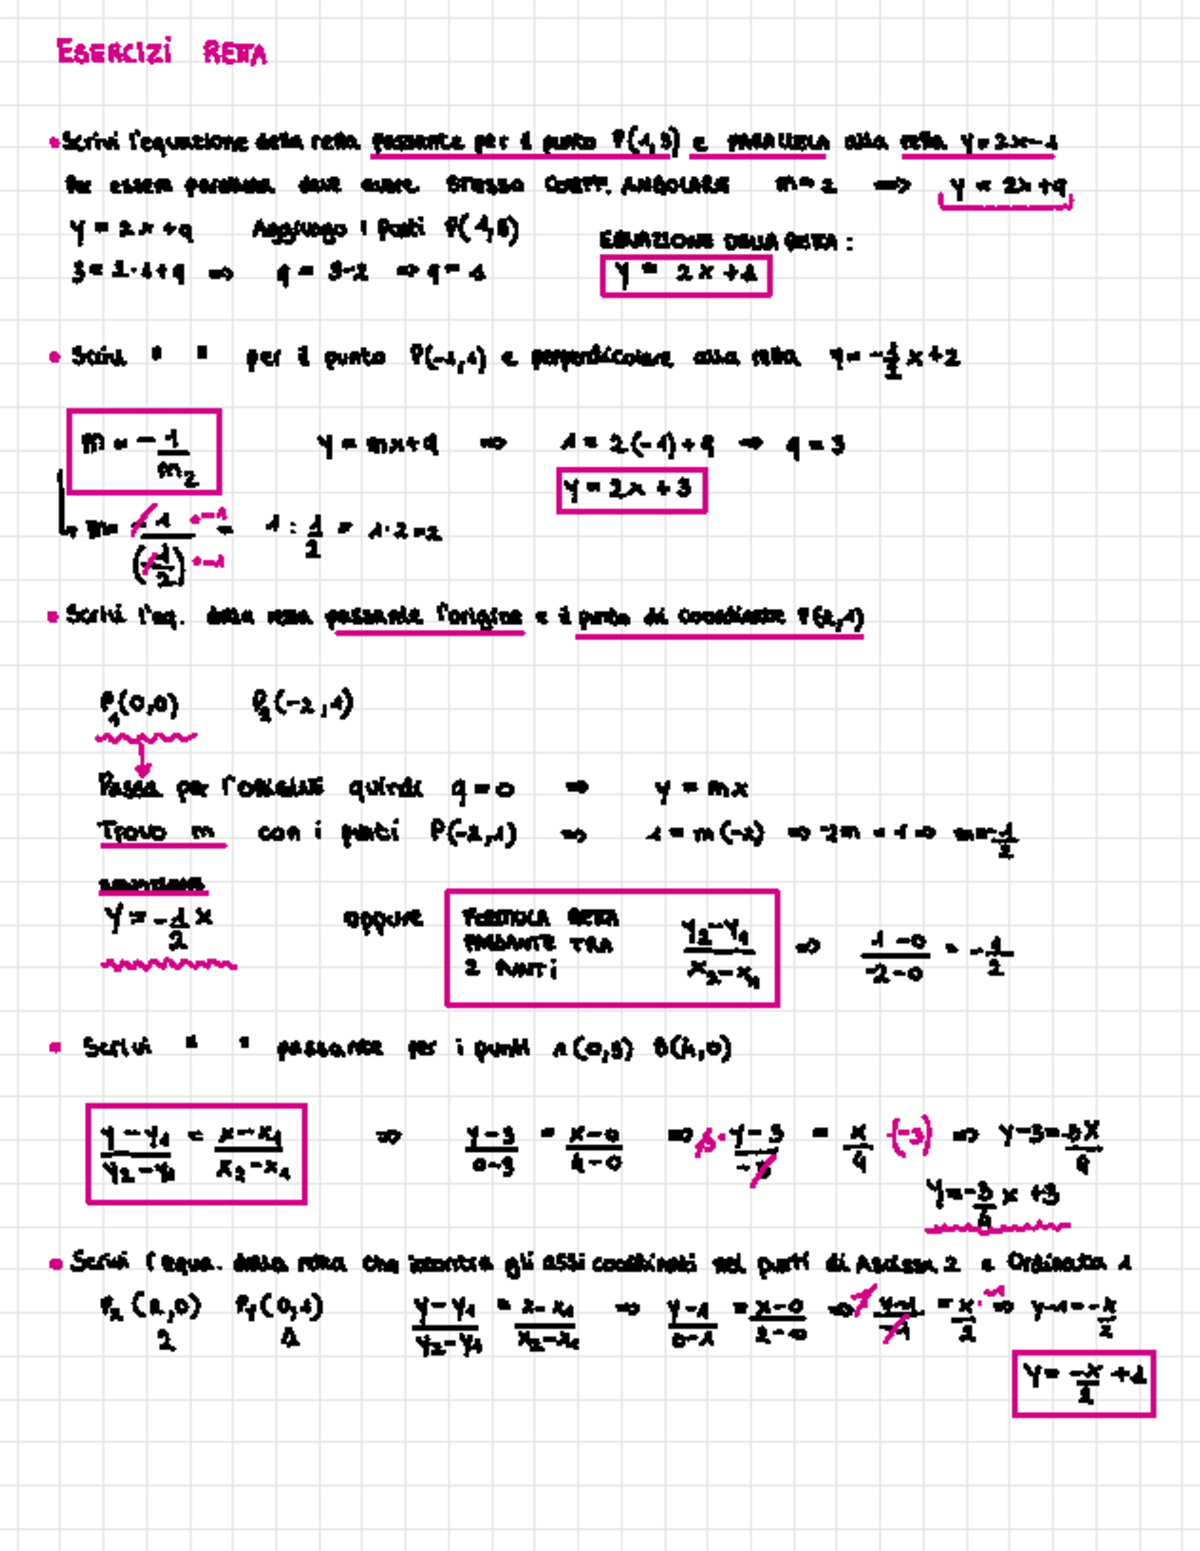 ESERCIZI RETTA
• Scrivi l'equazione della retta passante per il punto P(1,3) e PARALLELA alla retta y=2x-1
Per essere parallela deve avere STESSO COEFF. ANGOLARE m=2 => y = 2x+q
y = 2x+q Aggiungo i Punti P(1,3)
EQUAZIONE DELLA RETTA:
3 = 2·1+q => q = 3-2 => q = 1
y = 2x+1
• Scrivi " " per il punto P(-1,1) e perpendicolare alla retta y = -1/2 x+2
m = -1/m2 y = mx+q => 1 = 2(-1)+q => q = 3
y = 2x + 3
m = -1 ·-1 / (-1/2) ·-1 = 1 : 1/2 = 1·2=2
• Scrivi l'eq. della retta passante l'origine e il punto di coordinate P(2,1)
P1(0,0) P2(-2,1)
Passa per l'ORIGINE quindi q=0 => y = mx
Trovo m con i punti P(-2,1) => 1 = m(-2) => -2m = 1 => m=-1/2
EQUAZIONE
y = -1/2 x oppure FORMULA RETTA PASSANTE TRA 2 PUNTI y2-y1 / x2-x1 => 1-0 / -2-0 = -1/2
• Scrivi " " passante per i punti A(0,3) B(4,0)
y-y1 / y2-y1 = x-x1 / x2-x1 => y-3 / 0-3 = x-0 / 4-0 => -3· y-3 / -3 = x/4 ·(-3) => y-3=-3x/4
y=-3/4 x +3
• Scrivi l'equa. della retta che incontra gli assi coordinati nei punti di Ascissa 2 e Ordinata 1
Px (2,0) Py (0,1) y-y1 / y2-y1 = x-x1 / x2-x1 => y-1 / 0-1 = x-0 / 2-0 => -1 y-1 / -1 = x/2 ·-1 => y-1=-x/2
2 1
y = -x/2 +1